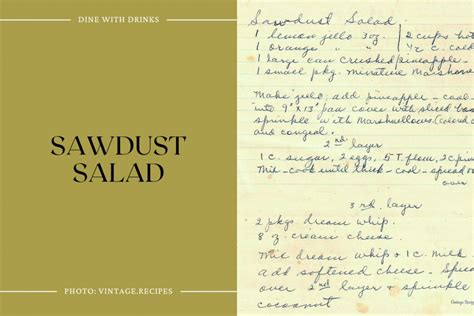 DINE WITH DRINKS
SAWDUST
SALAD
PHOTO: VINTAGE.RECIPES
Sawdust Salad
1 lemon jello 3 oz. 2 cups hot
1 orange " " 1/2 c. cold
1 large can crushed pineapple
1 small pkg. minature Marshm
Make jello, add pineapple - cool
into 9"x13" pan cover with sliced
sprinkle with Marshmellows (colored
and congeal.
2nd layer
1 c. sugar, 2 eggs, 5 T. flour, 2 c. pine
Mix - cook until thick - cool - spread
over
3rd layer
2 pkgs dream whip
8 oz. cream cheese
Mix dream whip + 1 c. milk
add softened cheese - Spread
over 2nd layer & sprinkle
cocoanut